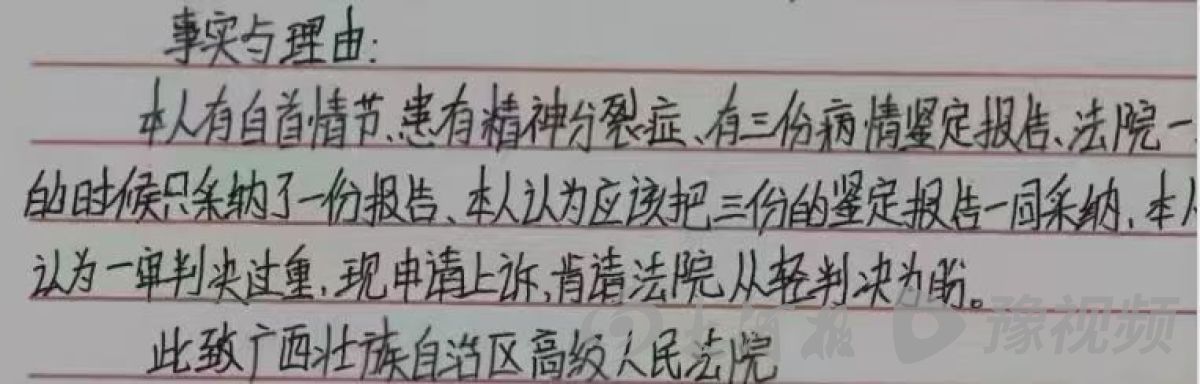 事实与理由:
本人有自首情节、患有精神分裂症、有三份病情鉴定报告、法院一
的时候只采纳了一份报告、本人认为应该把三份的鉴定报告一同采纳、本人
认为一审判决过重,现申请上诉,肯请法院从轻判决为盼。
此致广西壮族自治区高级人民法院
大河报 豫视频